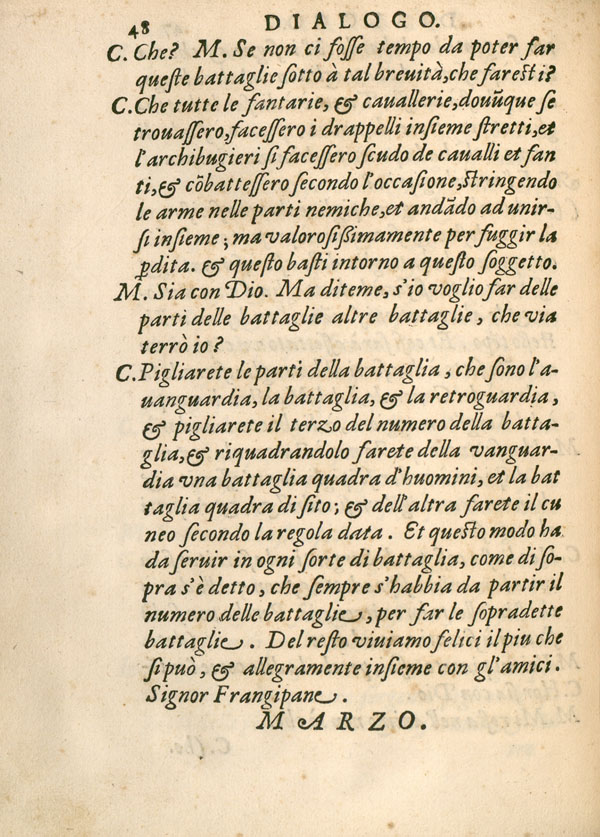 48
DIALOGO.
C. Che? M. Se non ci foſſe tempo da poter far
queſte battaglie ſotto à tal breuità, che fareſti?
C. Che tutte le fantarie, & cauallerie, douũque ſe
trouaſſero, faceſſero i drappelli inſieme ſtretti, et
l'archibugieri ſi faceſſero ſcudo de caualli et fan
ti, & cõbatteſſero ſecondo l'occaſione, ſtringendo
le arme nelle parti nemiche, et andãdo ad unir-
ſi inſieme; ma valoroſiſsimamente per fuggir la
ꝑdita. & queſto baſti intorno a queſto ſoggetto.
M. Sia con Dio. Ma diteme, s'io voglio far delle
parti delle battaglie altre battaglie, che via
terrò io?
C. Pigliarete le parti della battaglia, che ſono l'a-
uanguardia, la battaglia, & la retroguardia,
& pigliarete il terzo del numero della batta-
glia, & riquadrandolo farete della vanguar-
dia vna battaglia quadra d'huomini, et la bat
taglia quadra di ſito; & dell'altra farete il cu
neo ſecondo la regola data. Et queſto modo ha
da ſeruir in ogni ſorte di battaglia, come di ſo-
pra s'è detto, che ſempre s'habbia da partir il
numero delle battaglie, per far le ſopradette
battaglie. Del reſto viuiamo felici il piu che
ſi può, & allegramente inſieme con gl'amici.
Signor Frangipane.
MARZO.